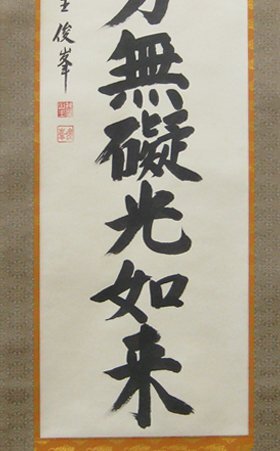 無礙光如来
俊峯